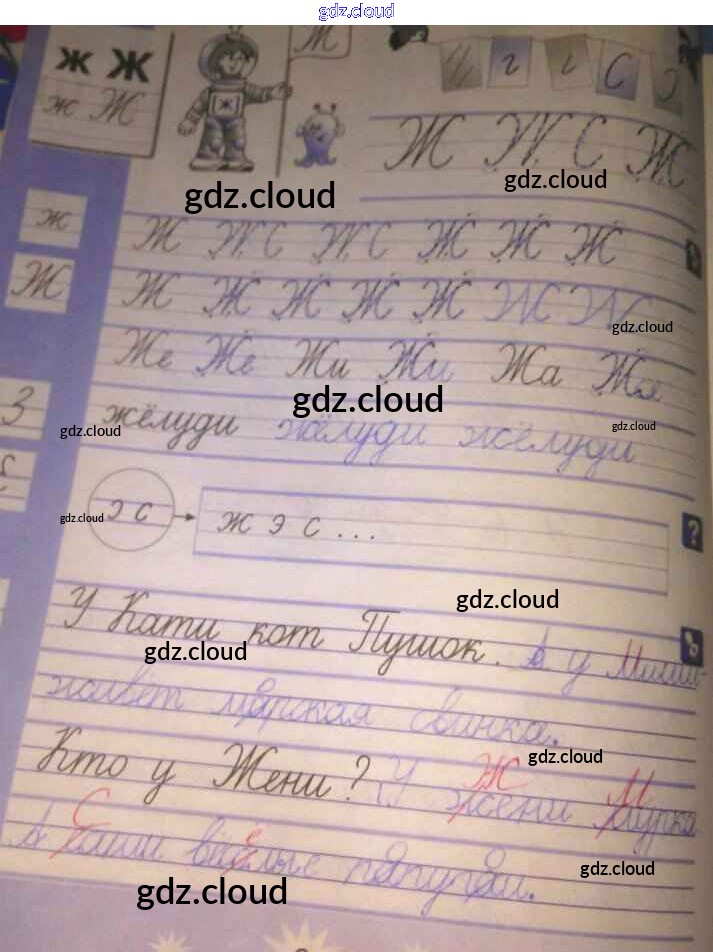 gdz.cloud
ж Ж
ж Ж
Ж
Ж
г С
Ж Ж С Ж
gdz.cloud
gdz.cloud
ж
Ж Ж С Ж С Ж Ж Ж
Ж
Ж Ж Ж Ж Ж Ж Ж
gdz.cloud
Же Же Жи Жи Жа Жа
gdz.cloud
З
жёлуди жёлуди жёлуди
gdz.cloud
gdz.cloud
gdz.cloud
э с
ж э с ...
?
gdz.cloud
У Кати кот Пушок. А у Миши
gdz.cloud
живет марская свинка.
Кто у Жени? У жени мурка
gdz.cloud
Ж М
С
А саши весёлые попугаи.
gdz.cloud
gdz.cloud